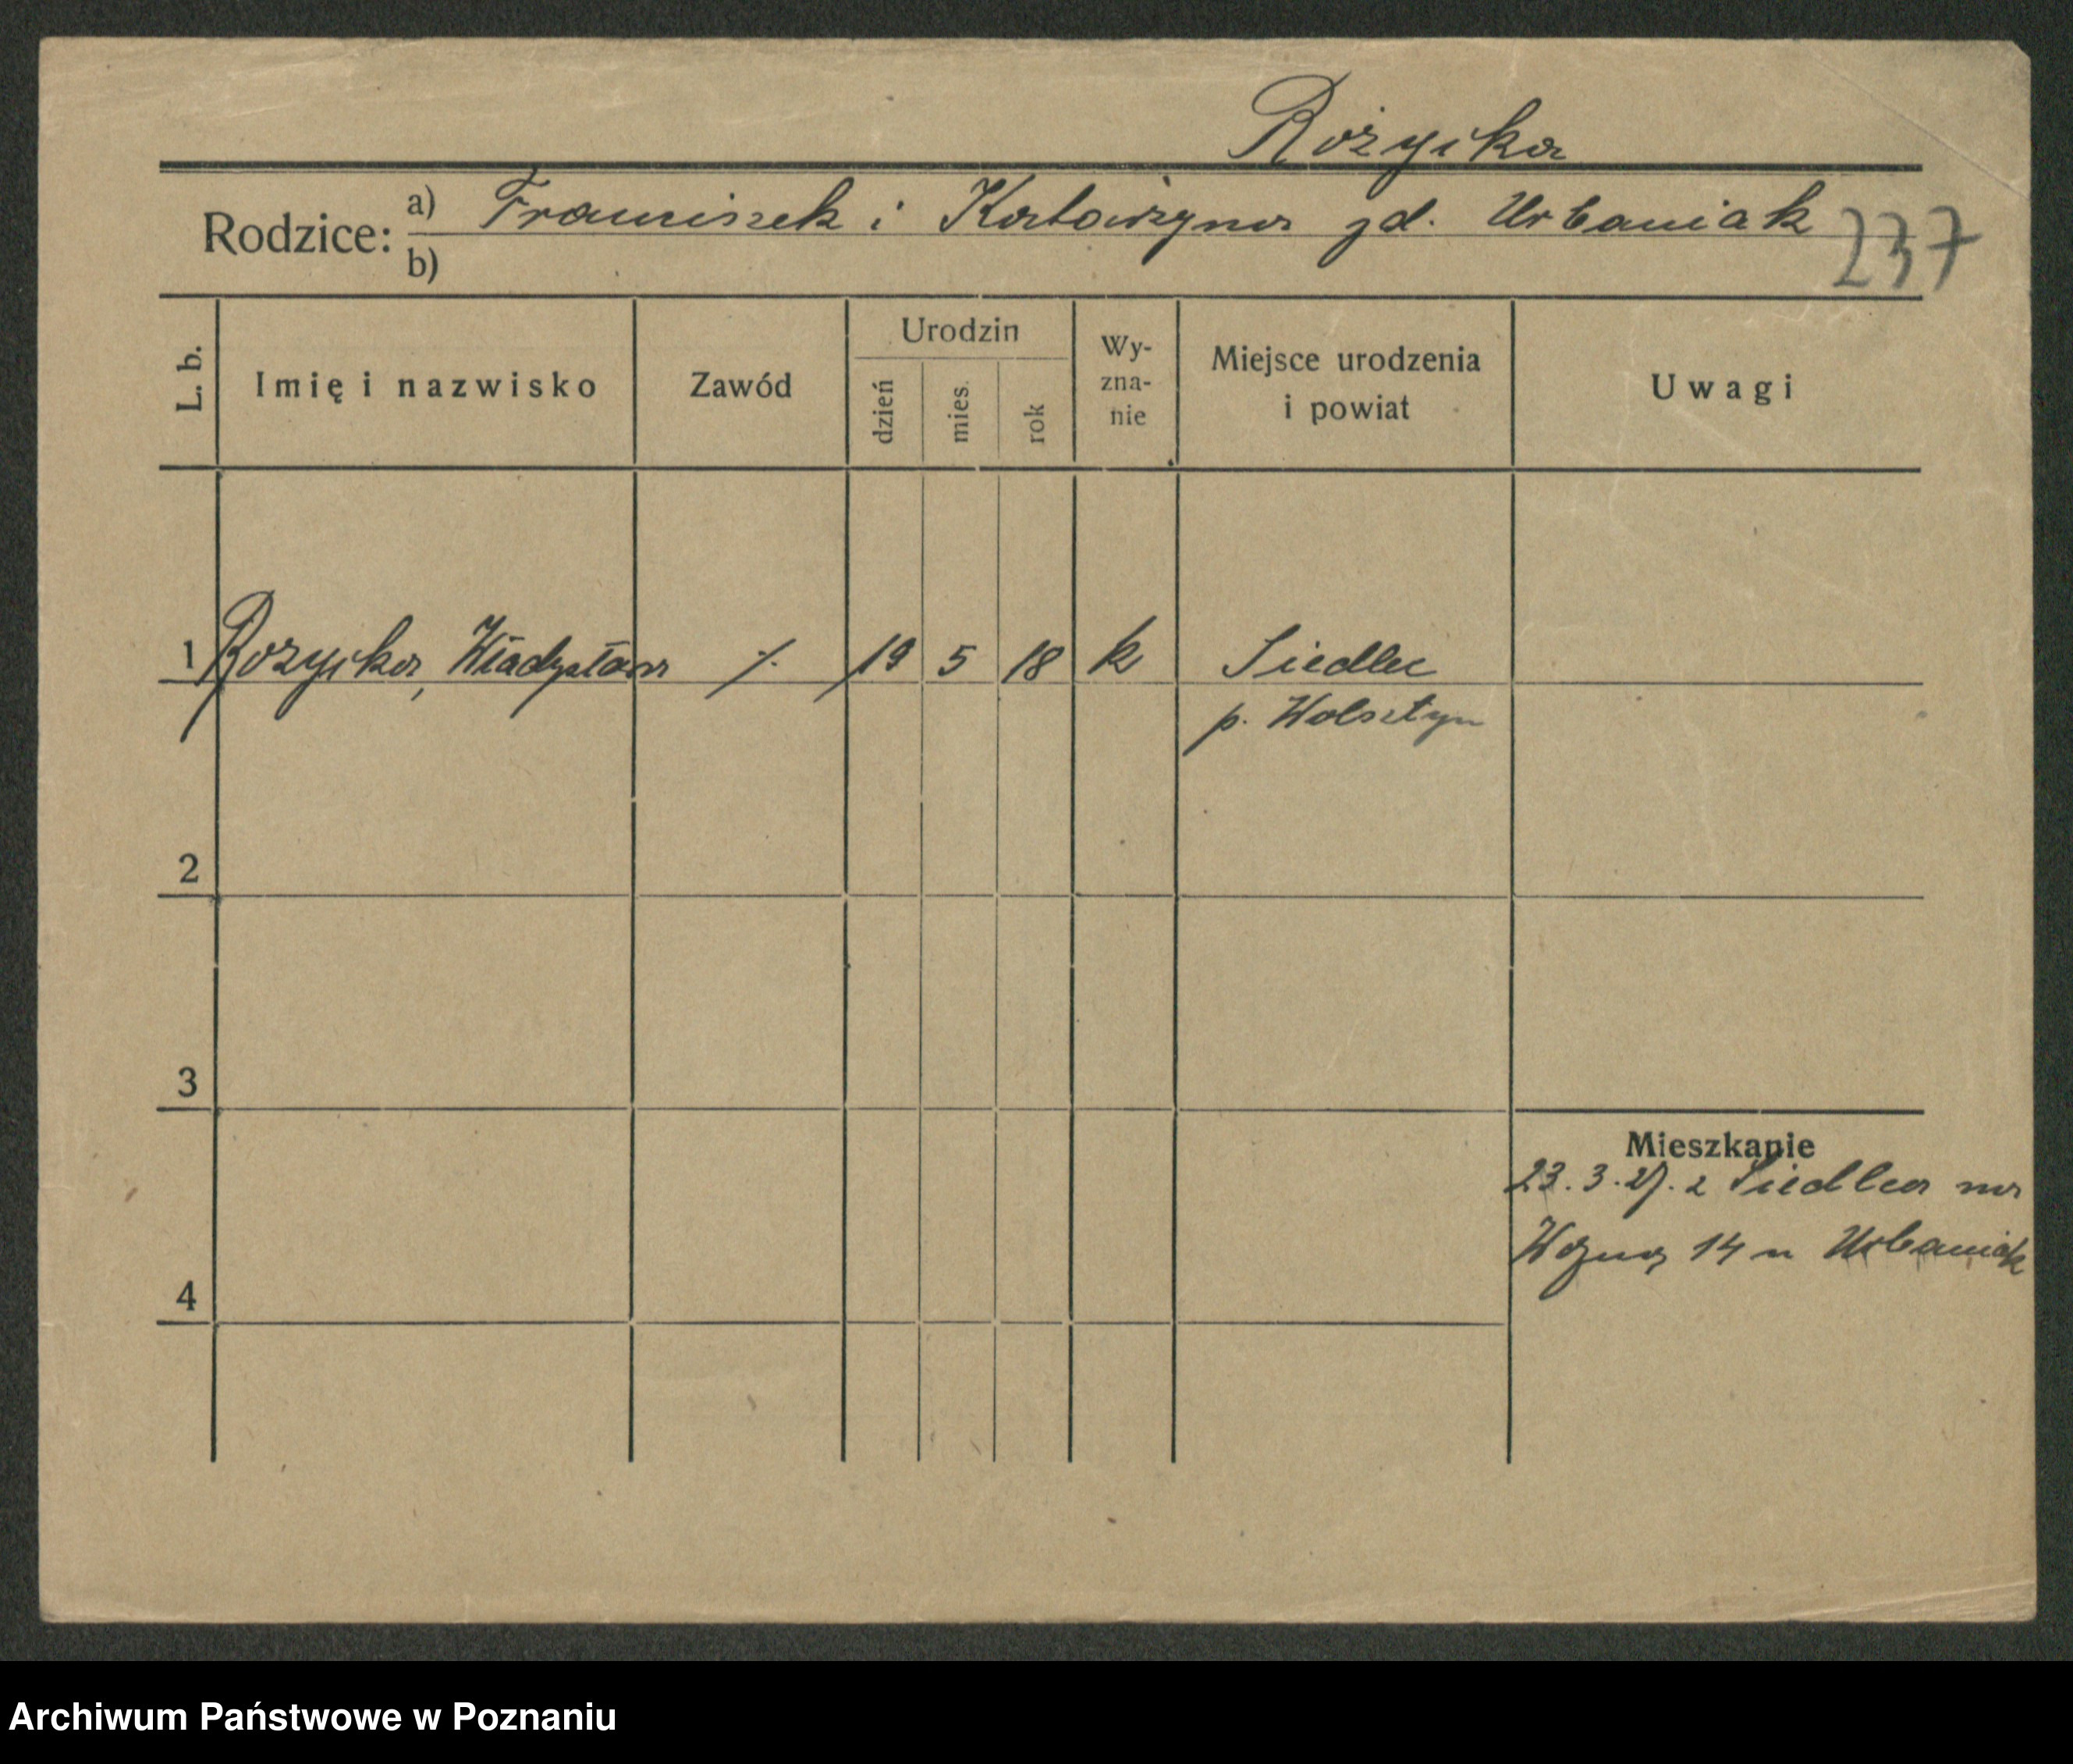 Rożycka
Rodzice: a) Franciszek i Katarzyna zd. Urbaniak
b)
237
L. b. Imię i nazwisko Zawód Urodzin dzień mies. rok Wy-zna-nie Miejsce urodzenia i powiat Uwagi
1 Rożycka, Władysława ./. 19 5 18 k Siedlec
p. Wolsztyn
2
3
Mieszkanie
23. 3. z Siedlca na
14 u Urbaniak
4
Archiwum Państwowe w Poznaniu